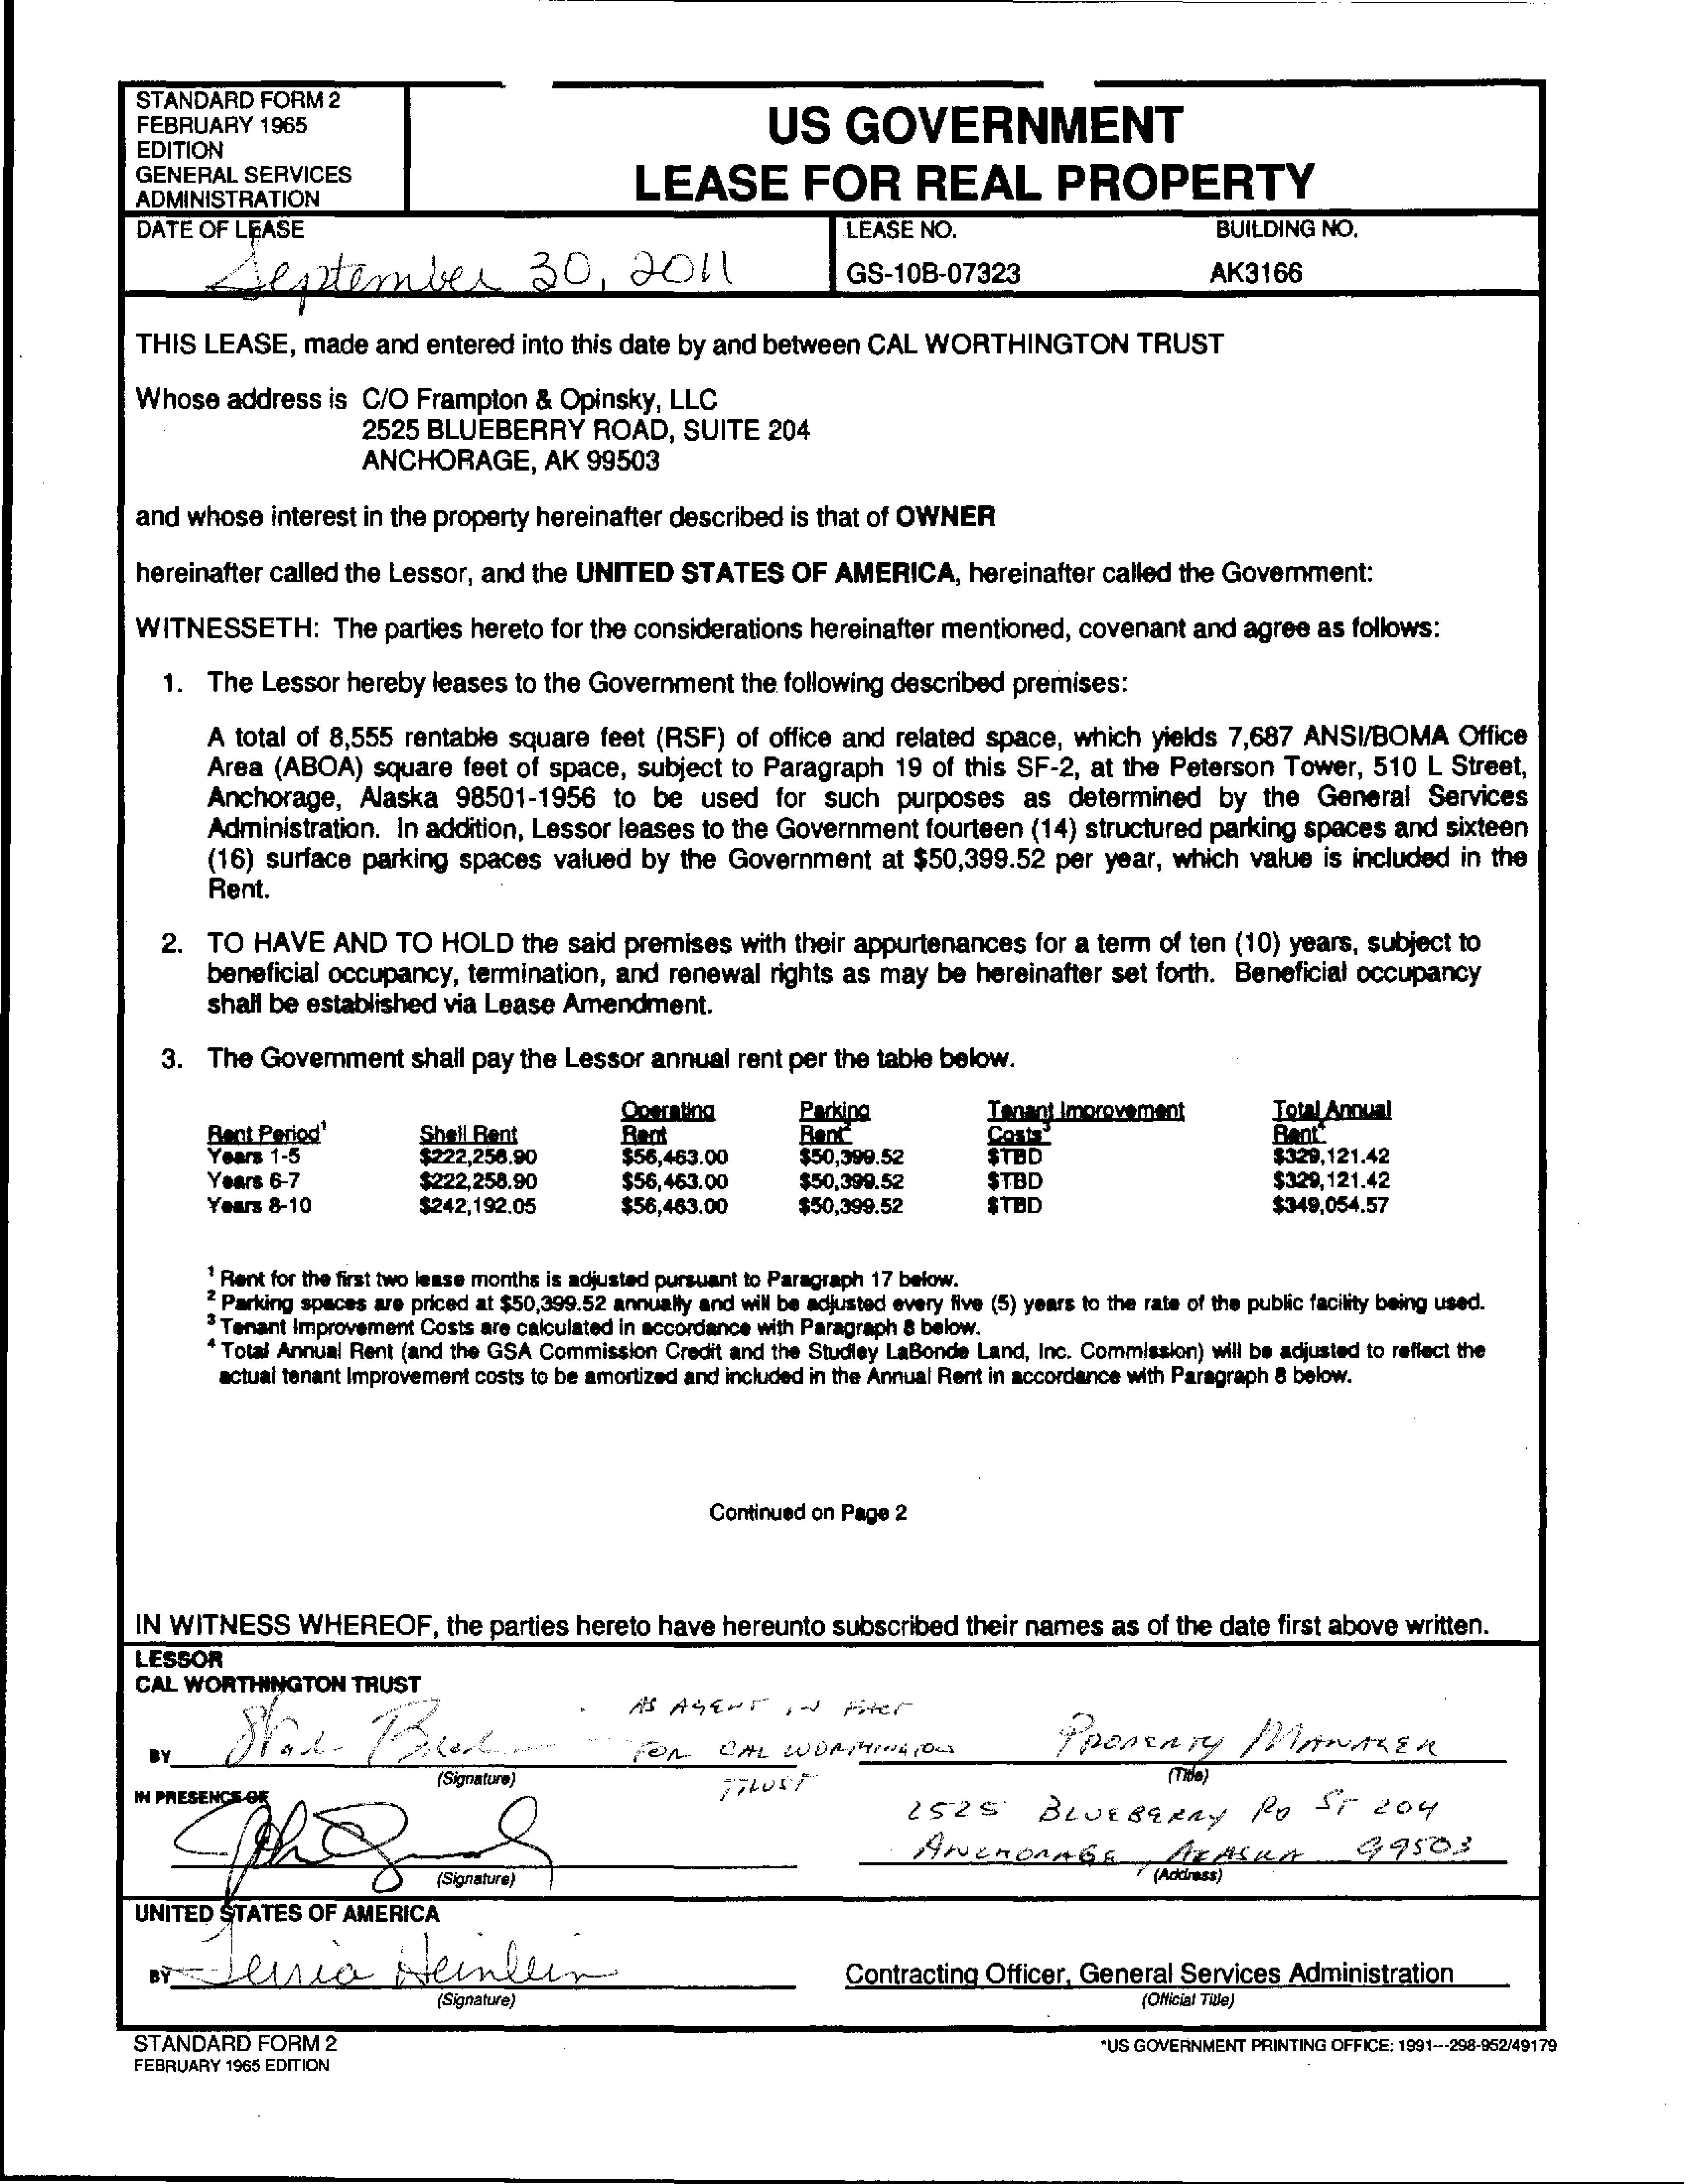 STANDARD FORM 2
FEBRUARY 1965
EDITION
GENERAL SERVICES
ADMINISTRATION
US GOVERNMENT
LEASE FOR REAL PROPERTY
DATE OF LEASE
September 30, 2011
LEASE NO.
GS-10B-07323
BUILDING NO.
AK3166
THIS LEASE, made and entered into this date by and between CAL WORTHINGTON TRUST
Whose address is C/O Frampton & Opinsky, LLC
2525 BLUEBERRY ROAD, SUITE 204
ANCHORAGE, AK 99503
and whose interest in the property hereinafter described is that of OWNER
hereinafter called the Lessor, and the UNITED STATES OF AMERICA, hereinafter called the Government:
WITNESSETH: The parties hereto for the considerations hereinafter mentioned, covenant and agree as follows:
1. The Lessor hereby leases to the Government the following described premises:
A total of 8,555 rentable square feet (RSF) of office and related space, which yields 7,687 ANSI/BOMA Office
Area (ABOA) square feet of space, subject to Paragraph 19 of this SF-2, at the Peterson Tower, 510 L Street,
Anchorage, Alaska 98501-1956 to be used for such purposes as determined by the General Services
Administration. In addition, Lessor leases to the Government fourteen (14) structured parking spaces and sixteen
(16) surface parking spaces valued by the Government at $50,399.52 per year, which value is included in the
Rent.
2. TO HAVE AND TO HOLD the said premises with their appurtenances for a term of ten (10) years, subject to
beneficial occupancy, termination, and renewal rights as may be hereinafter set forth. Beneficial occupancy
shall be established via Lease Amendment.
3. The Government shall pay the Lessor annual rent per the table below.
Rent Period¹ Shell Rent Operating Rent Parking Rent² Tenant Improvement Costs³ Total Annual Rent⁴
Years 1-5 $222,258.90 $56,463.00 $50,399.52 $TBD $329,121.42
Years 6-7 $222,258.90 $56,463.00 $50,399.52 $TBD $329,121.42
Years 8-10 $242,192.05 $56,463.00 $50,399.52 $TBD $349,054.57
¹ Rent for the first two lease months is adjusted pursuant to Paragraph 17 below.
² Parking spaces are priced at $50,399.52 annually and will be adjusted every five (5) years to the rate of the public facility being used.
³ Tenant Improvement Costs are calculated in accordance with Paragraph 8 below.
⁴ Total Annual Rent (and the GSA Commission Credit and the Studley LaBonde Land, Inc. Commission) will be adjusted to reflect the
actual tenant improvement costs to be amortized and included in the Annual Rent in accordance with Paragraph 8 below.
Continued on Page 2
IN WITNESS WHEREOF, the parties hereto have hereunto subscribed their names as of the date first above written.
LESSOR
CAL WORTHINGTON TRUST
AS AGENT IN FACT
BY FOR CAL WORTHINGTON PROPERTY MANAGER
(Signature) TRUST (Title)
IN PRESENCE OF
2525 BLUEBERRY RD ST 204
ANCHORAGE, ALASKA 99503
(Signature) (Address)
UNITED STATES OF AMERICA
BY Heinlein Contracting Officer, General Services Administration
(Signature) (Official Title)
STANDARD FORM 2
FEBRUARY 1965 EDITION
*US GOVERNMENT PRINTING OFFICE: 1991---298-952/49179